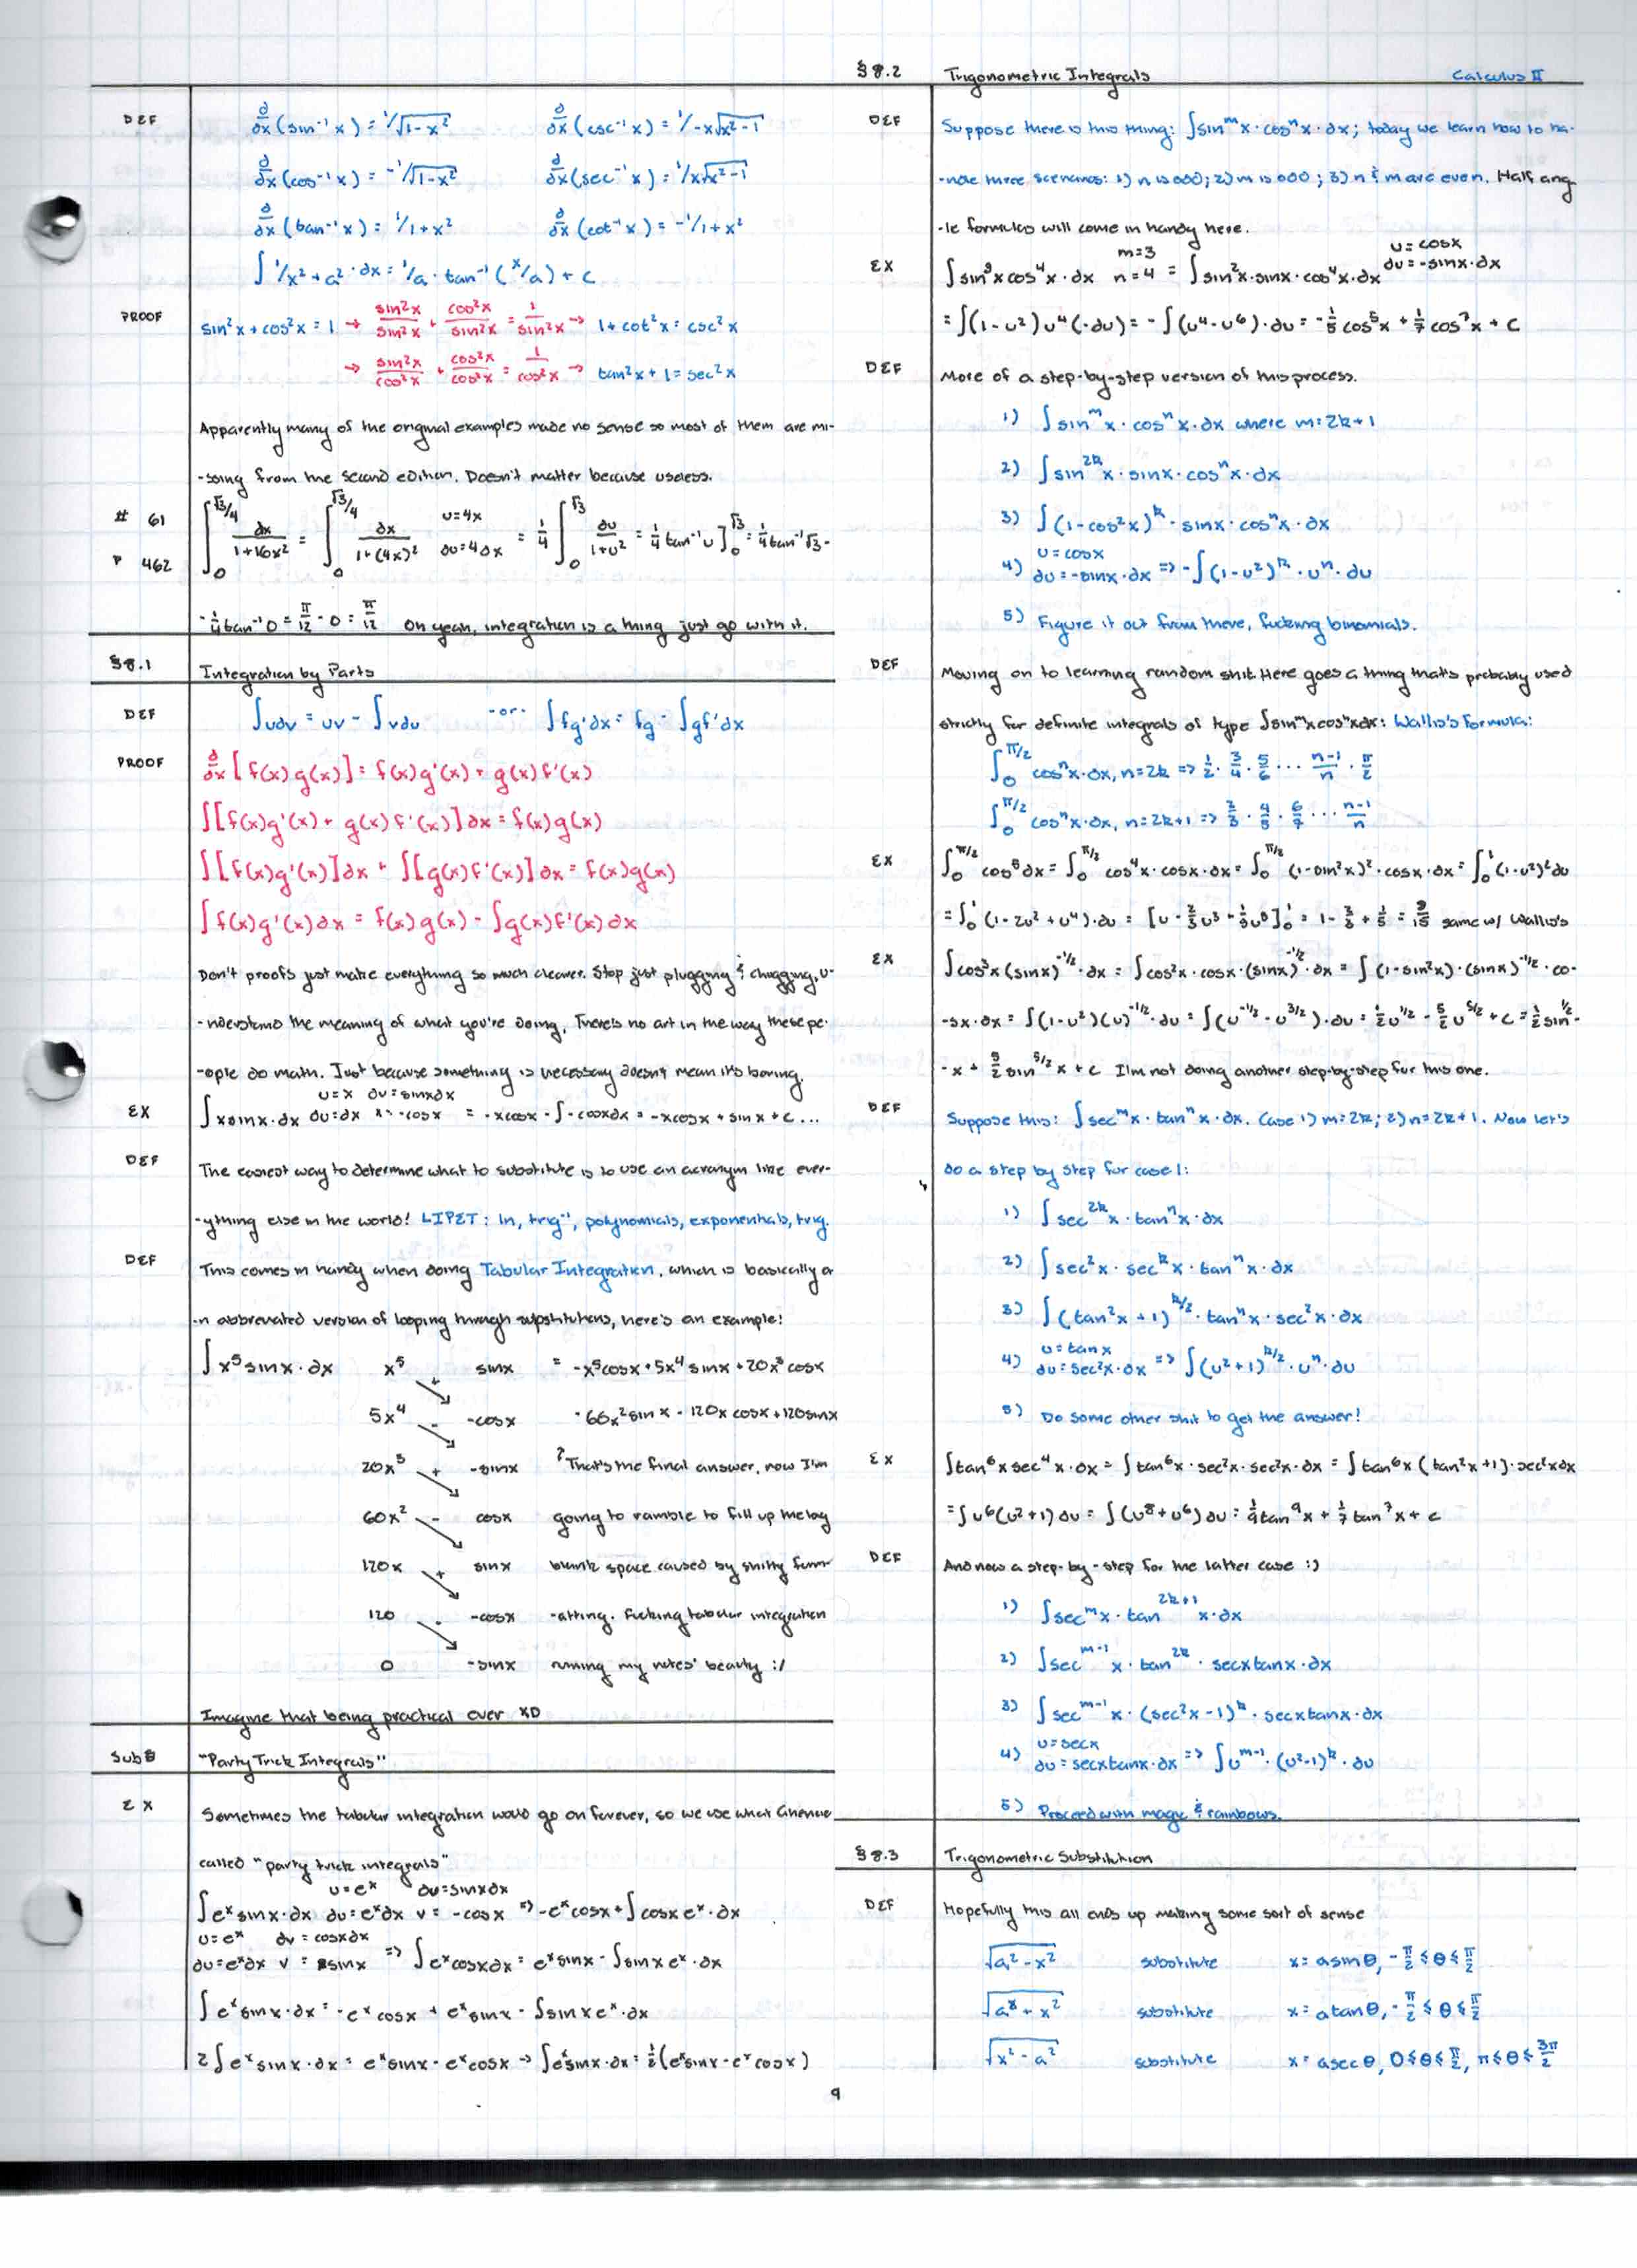 §8.2 Trigonometric Integrals Calculus II
DEF ∂/∂x (sin⁻¹x) = 1/√1-x² ∂/∂x (csc⁻¹x) = 1/-x√x²-1
∂/∂x (cos⁻¹x) = -1/√1-x² ∂/∂x (sec⁻¹x) = 1/x√x²-1
∂/∂x (tan⁻¹x) = 1/1+x² ∂/∂x (cot⁻¹x) = -1/1+x²
∫ 1/x²+a² · ∂x = 1/a · tan⁻¹ (x/a) + c
PROOF sin²x + cos²x = 1 → sin²x/sin²x + cos²x/sin²x = 1/sin²x → 1 + cot²x = csc²x
→ sin²x/cos²x + cos²x/cos²x = 1/cos²x → tan²x + 1 = sec²x
Apparently many of the original examples made no sense so most of them are mi-
-ssing from the second edition. Doesn't matter because useless.
# 61 ∫₀^√3/4 ∂x/1+16x² = ∫₀^√3/4 ∂x/1+(4x)² u=4x ∂u=4∂x = 1/4 ∫₀^√3 ∂u/1+u² = 1/4 tan⁻¹u]₀^√3 = 1/4 tan⁻¹√3 -
P 462
- 1/4 tan⁻¹0 = π/12 - 0 = π/12 Oh yeah, integration is a thing just go with it.
§8.1 Integration by Parts
DEF ∫u∂v = uv - ∫v∂u -or- ∫fg'∂x = fg - ∫gf'∂x
PROOF ∂/∂x [f(x)g(x)] = f(x)g'(x) + g(x)f'(x)
∫[f(x)g'(x) + g(x)f'(x)]∂x = f(x)g(x)
∫[f(x)g'(x)]∂x + ∫[g(x)f'(x)]∂x = f(x)g(x)
∫f(x)g'(x)∂x = f(x)g(x) - ∫g(x)f'(x)∂x
Don't proofs just make everything so much clearer. Stop just plugging & chugging, u-
-nderstand the meaning of what you're doing. There's no art in the way these pe-
-ople do math. Just because something is necessary doesn't mean it's boring.
u=x ∂v=sinx∂x
EX ∫xsinx·∂x ∂u=∂x v=-cosx = -xcosx - ∫-cosx∂x = -xcosx + sinx + c ...
DEF The easiest way to determine what to substitute is to use an acronym like ever-
-ything else in the world! LIPET: ln, trig⁻¹, polynomials, exponentials, trig.
DEF This comes in handy when doing Tabular Integration, which is basically a
-n abbreviated version of looping through substitutions, here's an example!
∫x⁵sinx·∂x x⁵ + sinx = -x⁵cosx + 5x⁴sinx + 20x³cosx
5x⁴ - -cosx - 60x²sinx - 120xcosx + 120sinx
20x³ + -sinx ↑ That's the final answer, now I'm
60x² - cosx going to ramble to fill up the big
120x + sinx blank space caused by shitty form-
120 - -cosx -atting. Fucking tabular integration
0 -sinx ruining my notes' beauty :/
Imagine that being practical over XD
Sub§ "Party Trick Integrals"
EX Sometimes the tabular integration would go on forever, so we use what
called "party trick integrals"
u=eˣ ∂v=sinx∂x
∫eˣsinx·∂x ∂u=eˣ∂x v=-cosx => -eˣcosx + ∫cosxeˣ·∂x
u=eˣ ∂v=cosx∂x
∂u=eˣ∂x v=sinx => ∫eˣcosx∂x = eˣsinx - ∫sinxeˣ·∂x
∫eˣsinx·∂x = -eˣcosx + eˣsinx - ∫sinxeˣ·∂x
2∫eˣsinx·∂x = eˣsinx - eˣcosx → ∫eˣsinx·∂x = 1/2(eˣsinx - eˣcosx)
DEF Suppose there is this thing: ∫sinᵐx·cosⁿx·∂x; today we learn how to ha-
-ndle three scenarios: 1) n is odd; 2) m is odd; 3) n & m are even. Half ang
-le formulas will come in handy here.
EX ∫sin³xcos⁴x·∂x m=3 n=4 = ∫sin²x·sinx·cos⁴x·∂x u=cosx ∂u=-sinx·∂x
= ∫(1-u²)u⁴(-∂u) = -∫(u⁴-u⁶)·∂u = -1/5 cos⁵x + 1/7 cos⁷x + c
DEF More of a step-by-step version of this process.
1) ∫sinᵐx·cosⁿx·∂x where m=2k+1
2) ∫sin²ᵏx·sinx·cosⁿx·∂x
3) ∫(1-cos²x)ᵏ·sinx·cosⁿx·∂x
4) u=cosx ∂u=-sinx·∂x => -∫(1-u²)ᵏ·uⁿ·∂u
5) Figure it out from there, fucking binomials.
DEF Moving on to learning random shit. Here goes a thing that's probably used
strictly for definite integrals of type ∫sinᵐxcosⁿx∂x: Wallis's Formula:
∫₀^π/2 cosⁿx·∂x, n=2k => 1/2 · 3/4 · 5/6 ··· n-1/n · π/2
∫₀^π/2 cosⁿx·∂x, n=2k+1 => 2/3 · 4/5 · 6/7 ··· n-1/n
EX ∫₀^π/2 cos⁵∂x = ∫₀^π/2 cos⁴x·cosx·∂x = ∫₀^π/2 (1-sin²x)²·cosx·∂x = ∫₀¹(1-u²)²∂u
= ∫₀¹(1-2u²+u⁴)·∂u = [u - 2/3u³ - 1/5u⁵]₀¹ = 1 - 2/3 + 1/5 = 8/15 same w/ Wallis's
EX ∫cos³x(sinx)^-1/2·∂x = ∫cos²x·cosx·(sinx)^-1/2·∂x = ∫(1-sin²x)·(sinx)^-1/2·co-
-sx·∂x = ∫(1-u²)(u)^-1/2·∂u = ∫(u^-1/2 - u^3/2)·∂u = 1/2u^1/2 - 5/2u^5/2 + c = 1/2 sin^1/2-
-x + 5/2 sin^5/2x + c I'm not doing another step-by-step for this one.
DEF Suppose this: ∫secᵐx·tanⁿx·∂x. Case 1) m=2k; 2) n=2k+1. Now let's
do a step by step for case 1:
1) ∫sec²ᵏx·tanⁿx·∂x
2) ∫sec²x·secᵏx·tanⁿx·∂x
3) ∫(tan²x+1)^k/2·tanⁿx·sec²x·∂x
4) u=tanx ∂u=sec²x·∂x => ∫(u²+1)^k/2·uⁿ·∂u
5) Do some other shit to get the answer!
EX ∫tan⁶xsec⁴x·∂x = ∫tan⁶x·sec²x·sec²x·∂x = ∫tan⁶x(tan²x+1)·sec²x∂x
= ∫u⁶(u²+1)∂u = ∫(u⁸+u⁶)∂u = 1/9tan⁹x + 1/7tan⁷x + c
DEF And now a step-by-step for the latter case :)
1) ∫secᵐx·tan²ᵏ⁺¹x·∂x
2) ∫secᵐ⁻¹x·tan²ᵏ·secxtanx·∂x
3) ∫secᵐ⁻¹x·(sec²x-1)ᵏ·secxtanx·∂x
4) u=secx ∂u=secxtanx·∂x => ∫uᵐ⁻¹·(u²-1)ᵏ·∂u
5) Proceed with magic & rainbows.
§8.3 Trigonometric Substitution
DEF Hopefully this all ends up making some sort of sense
√a²-x² substitute x=asinθ, -π/2≤θ≤π/2
√a²+x² substitute x=atanθ, -π/2≤θ≤π/2
√x²-a² substitute x=asecθ, 0≤θ≤π/2, π≤θ≤3π/2
9